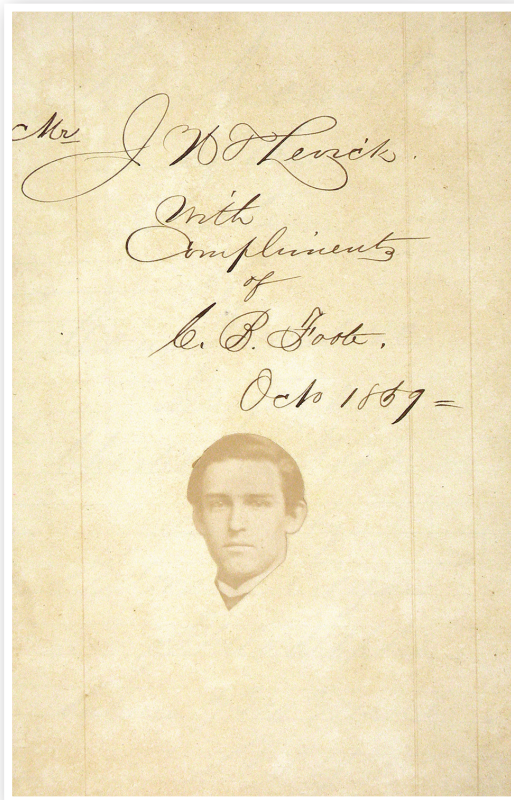 Mr J W S Levick.
With
Compliments
of
C. B. Foote.
Octo 1869=